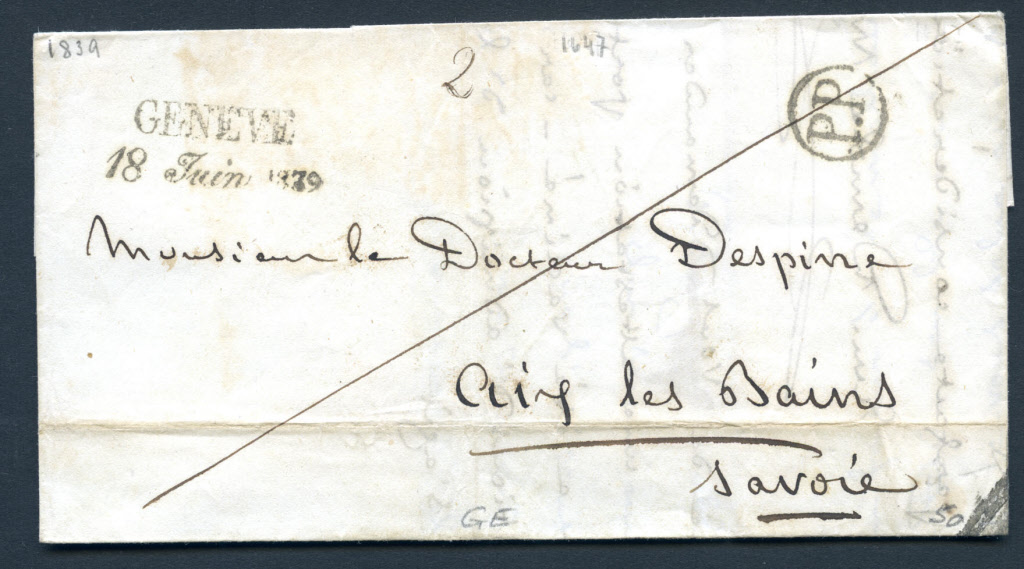 1839
1647
2
P.P.
GENEVE
18 Juin 1839
Monsieur le Docteur Despine
Aix les Bains
Savoie
GE
50